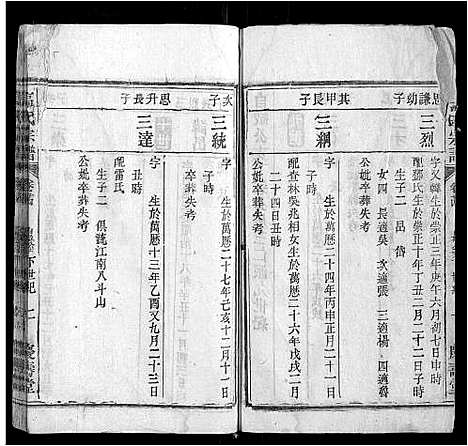 思謙幼子
三烈
字又韓生於崇正三年庚午六月初七日申時
配鄧氏生於崇正十年丁丑二月二十二日子時
生子二 呂 岱
女四 長適吳 次適張 三適楊 四適魯
公妣卒葬失考
其甲長子
三綱
字 生於萬曆二十四年丙申正月二日
時
配林吳兆相女生於萬曆二十六年戊戌二月
二十四日丑時
公妣卒葬失考
次子
三統
字 生於萬曆二十七年己亥十二月一日
子時
公妣卒葬失考
思升長子
三達
字 生於萬曆十三年乙酉又九月二十三日
丑時
配雷氏
生子二 俱葬江南八斗山
公妣卒葬失考
氏宗譜
下世紀
慶壽堂